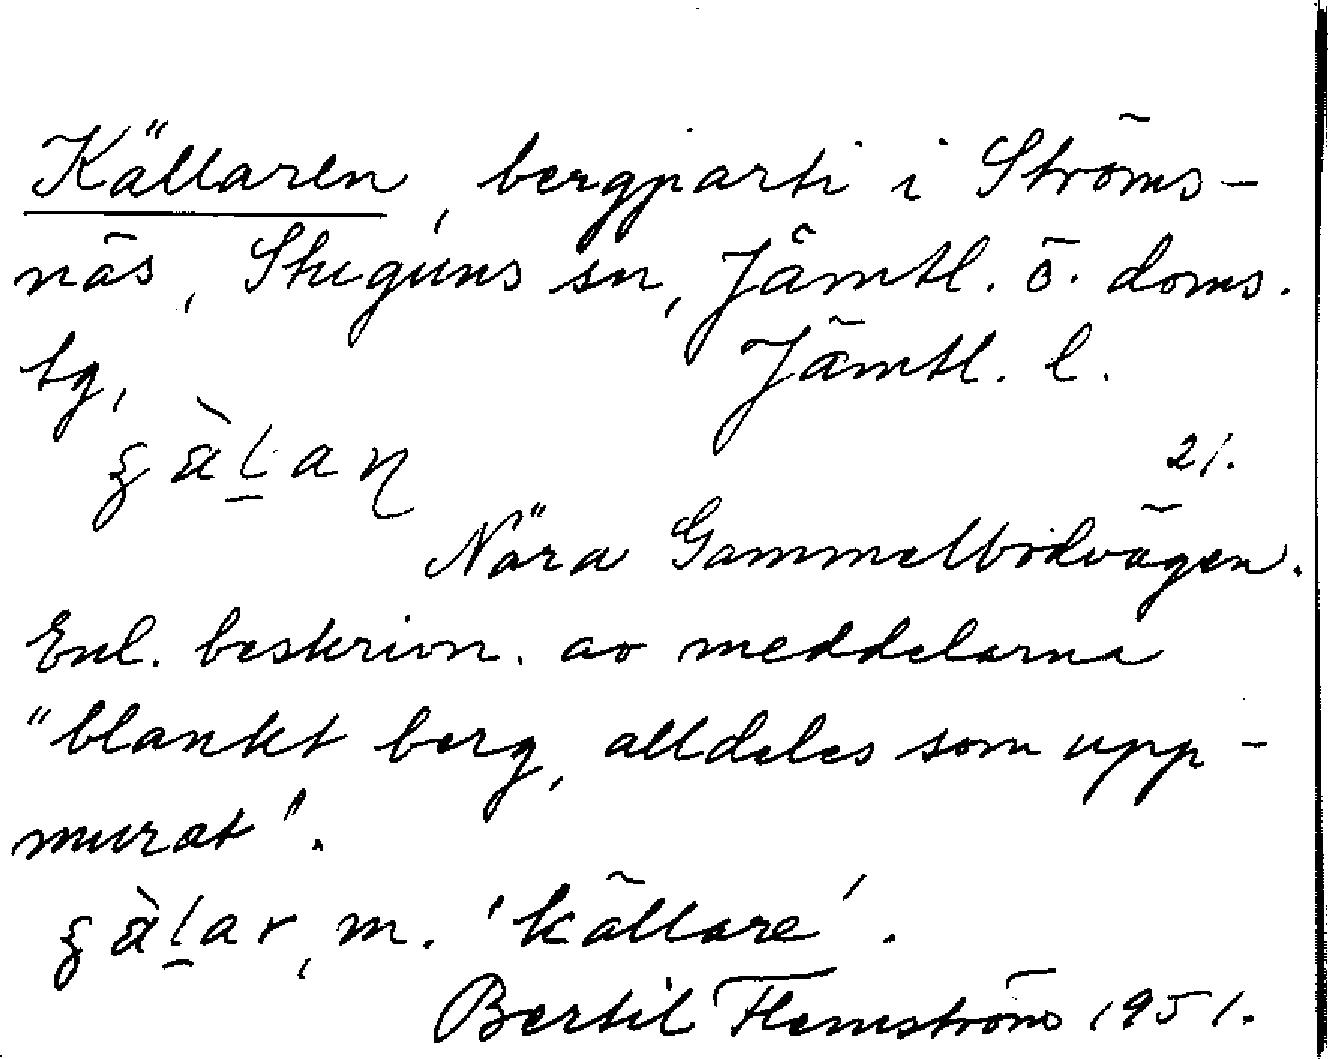 Källaren, bergparti i Ströms-
näs, Stuguns sn, Jämtl. ö. doms.
sg, Jämtl. l.
21.
Nära Gammelbodvägen.
Enl. beskrivn. av meddelarna
"blankt berg, alldeles som upp-
murat".
m. 'källare'.
Bertil Flemström 1951.